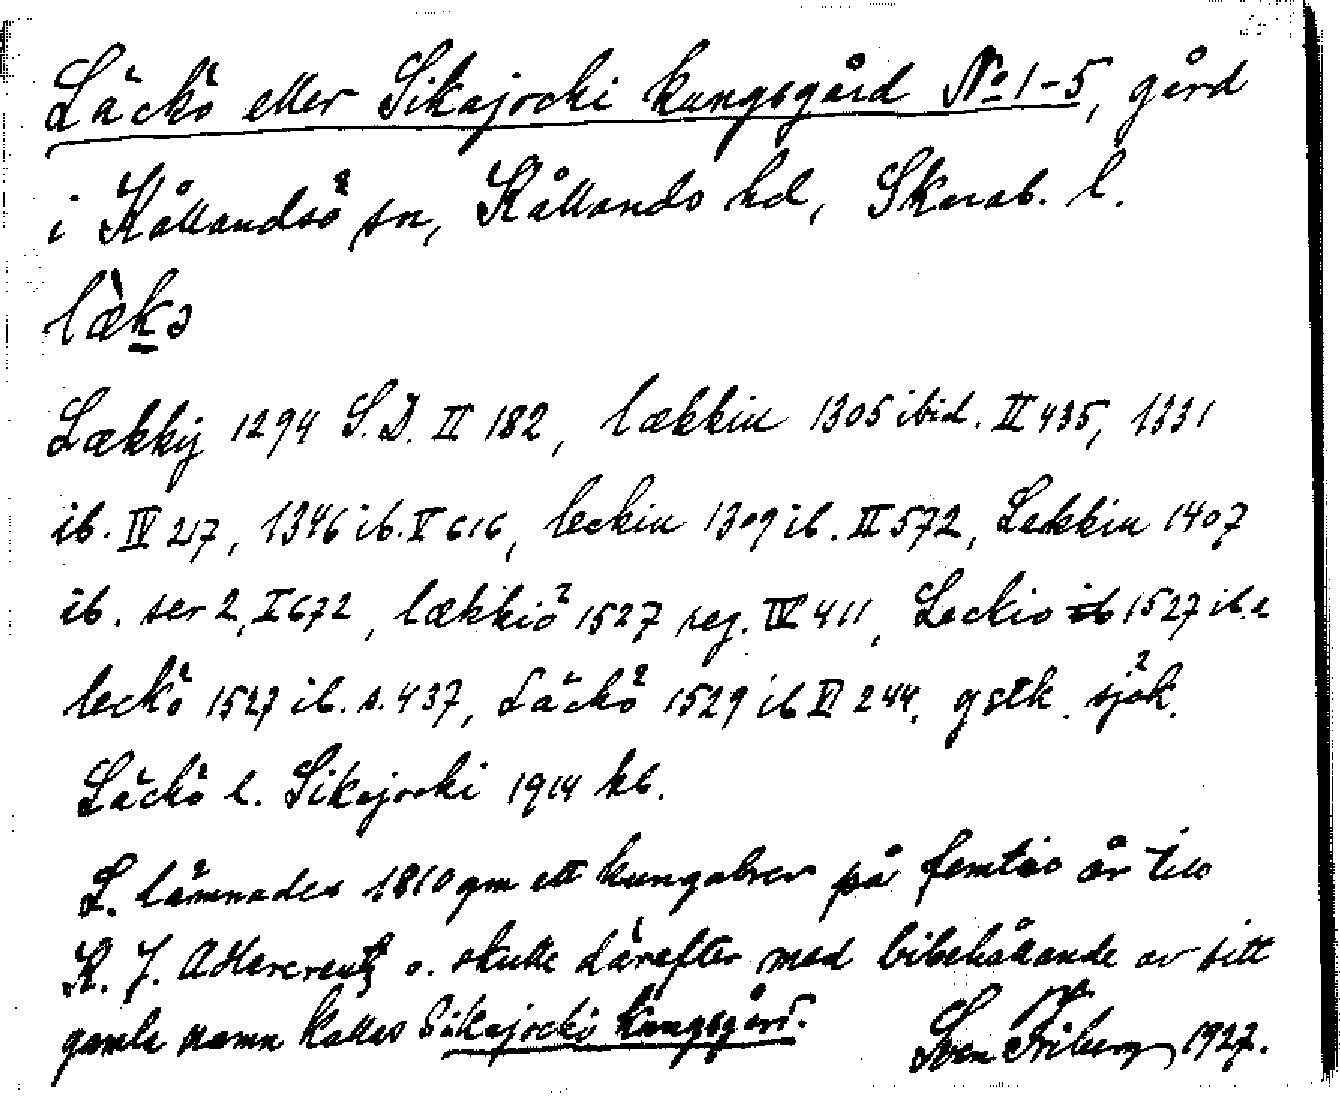 Läckö eller Sikajocki kungsgård No 1-5, gård
i Kållandsö sn, Kållands hd, Skarab. l.
lɑ̀̈kə
Lækky 1294 S.D. II 182, lækkiu 1305 ibid. II 435, 1331
ib. IV 217, 1346 ib. V 616, leckiu 1309 ib. II 572, Lekkiu 1407
ib. ser 2, I 672, lækkiö 1527 reg. IV 411, Leckio 1527 ib.
leckö 1527 ib. s. 437, Läckö 1529 ib VI 244. gstk. sjök.
Läckö l. Sikajocki 1914 kb.
L. lämnades 1810 gm ett kungabrev på femtio år till
K. J. Adlercreutz o. skulle därefter med bibehållande av sitt
gamla namn kallas Sikajocki kungsgård.
Sven Friberg, 1927.